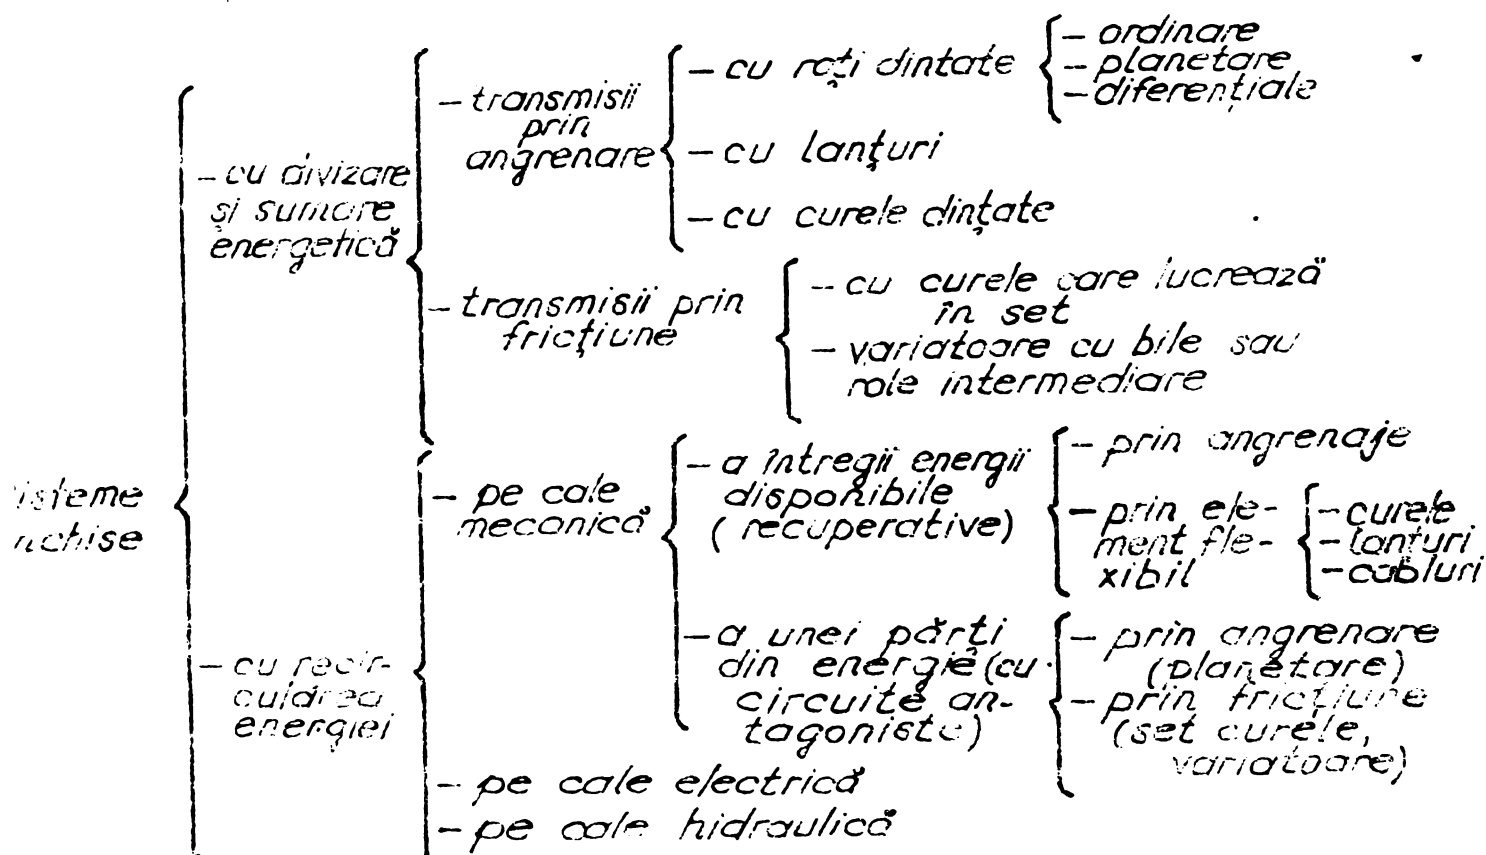 isteme
nchise
- cu divizare
și sumare
energetică
- transmisii
prin
angrenare
- cu roți dințate
- ordinare
- planetare
- diferențiale
- cu lanțuri
- cu curele dințate
- transmisii prin
fricțiune
- cu curele care lucrează
în set
- variatoare cu bile sau
role intermediare
- cu recir-
cularea
energiei
- pe cale
mecanică
- a întregii energii
disponibile
(recuperative)
- prin angrenaje
- prin ele-
ment fle-
xibil
- curele
- lanțuri
- cabluri
- a unei părți
din energie (cu
circuite an-
tagoniste)
- prin angrenare
(planetare)
- prin fricțiune
(set curele,
variatoare)
- pe cale electrică
- pe cale hidraulică